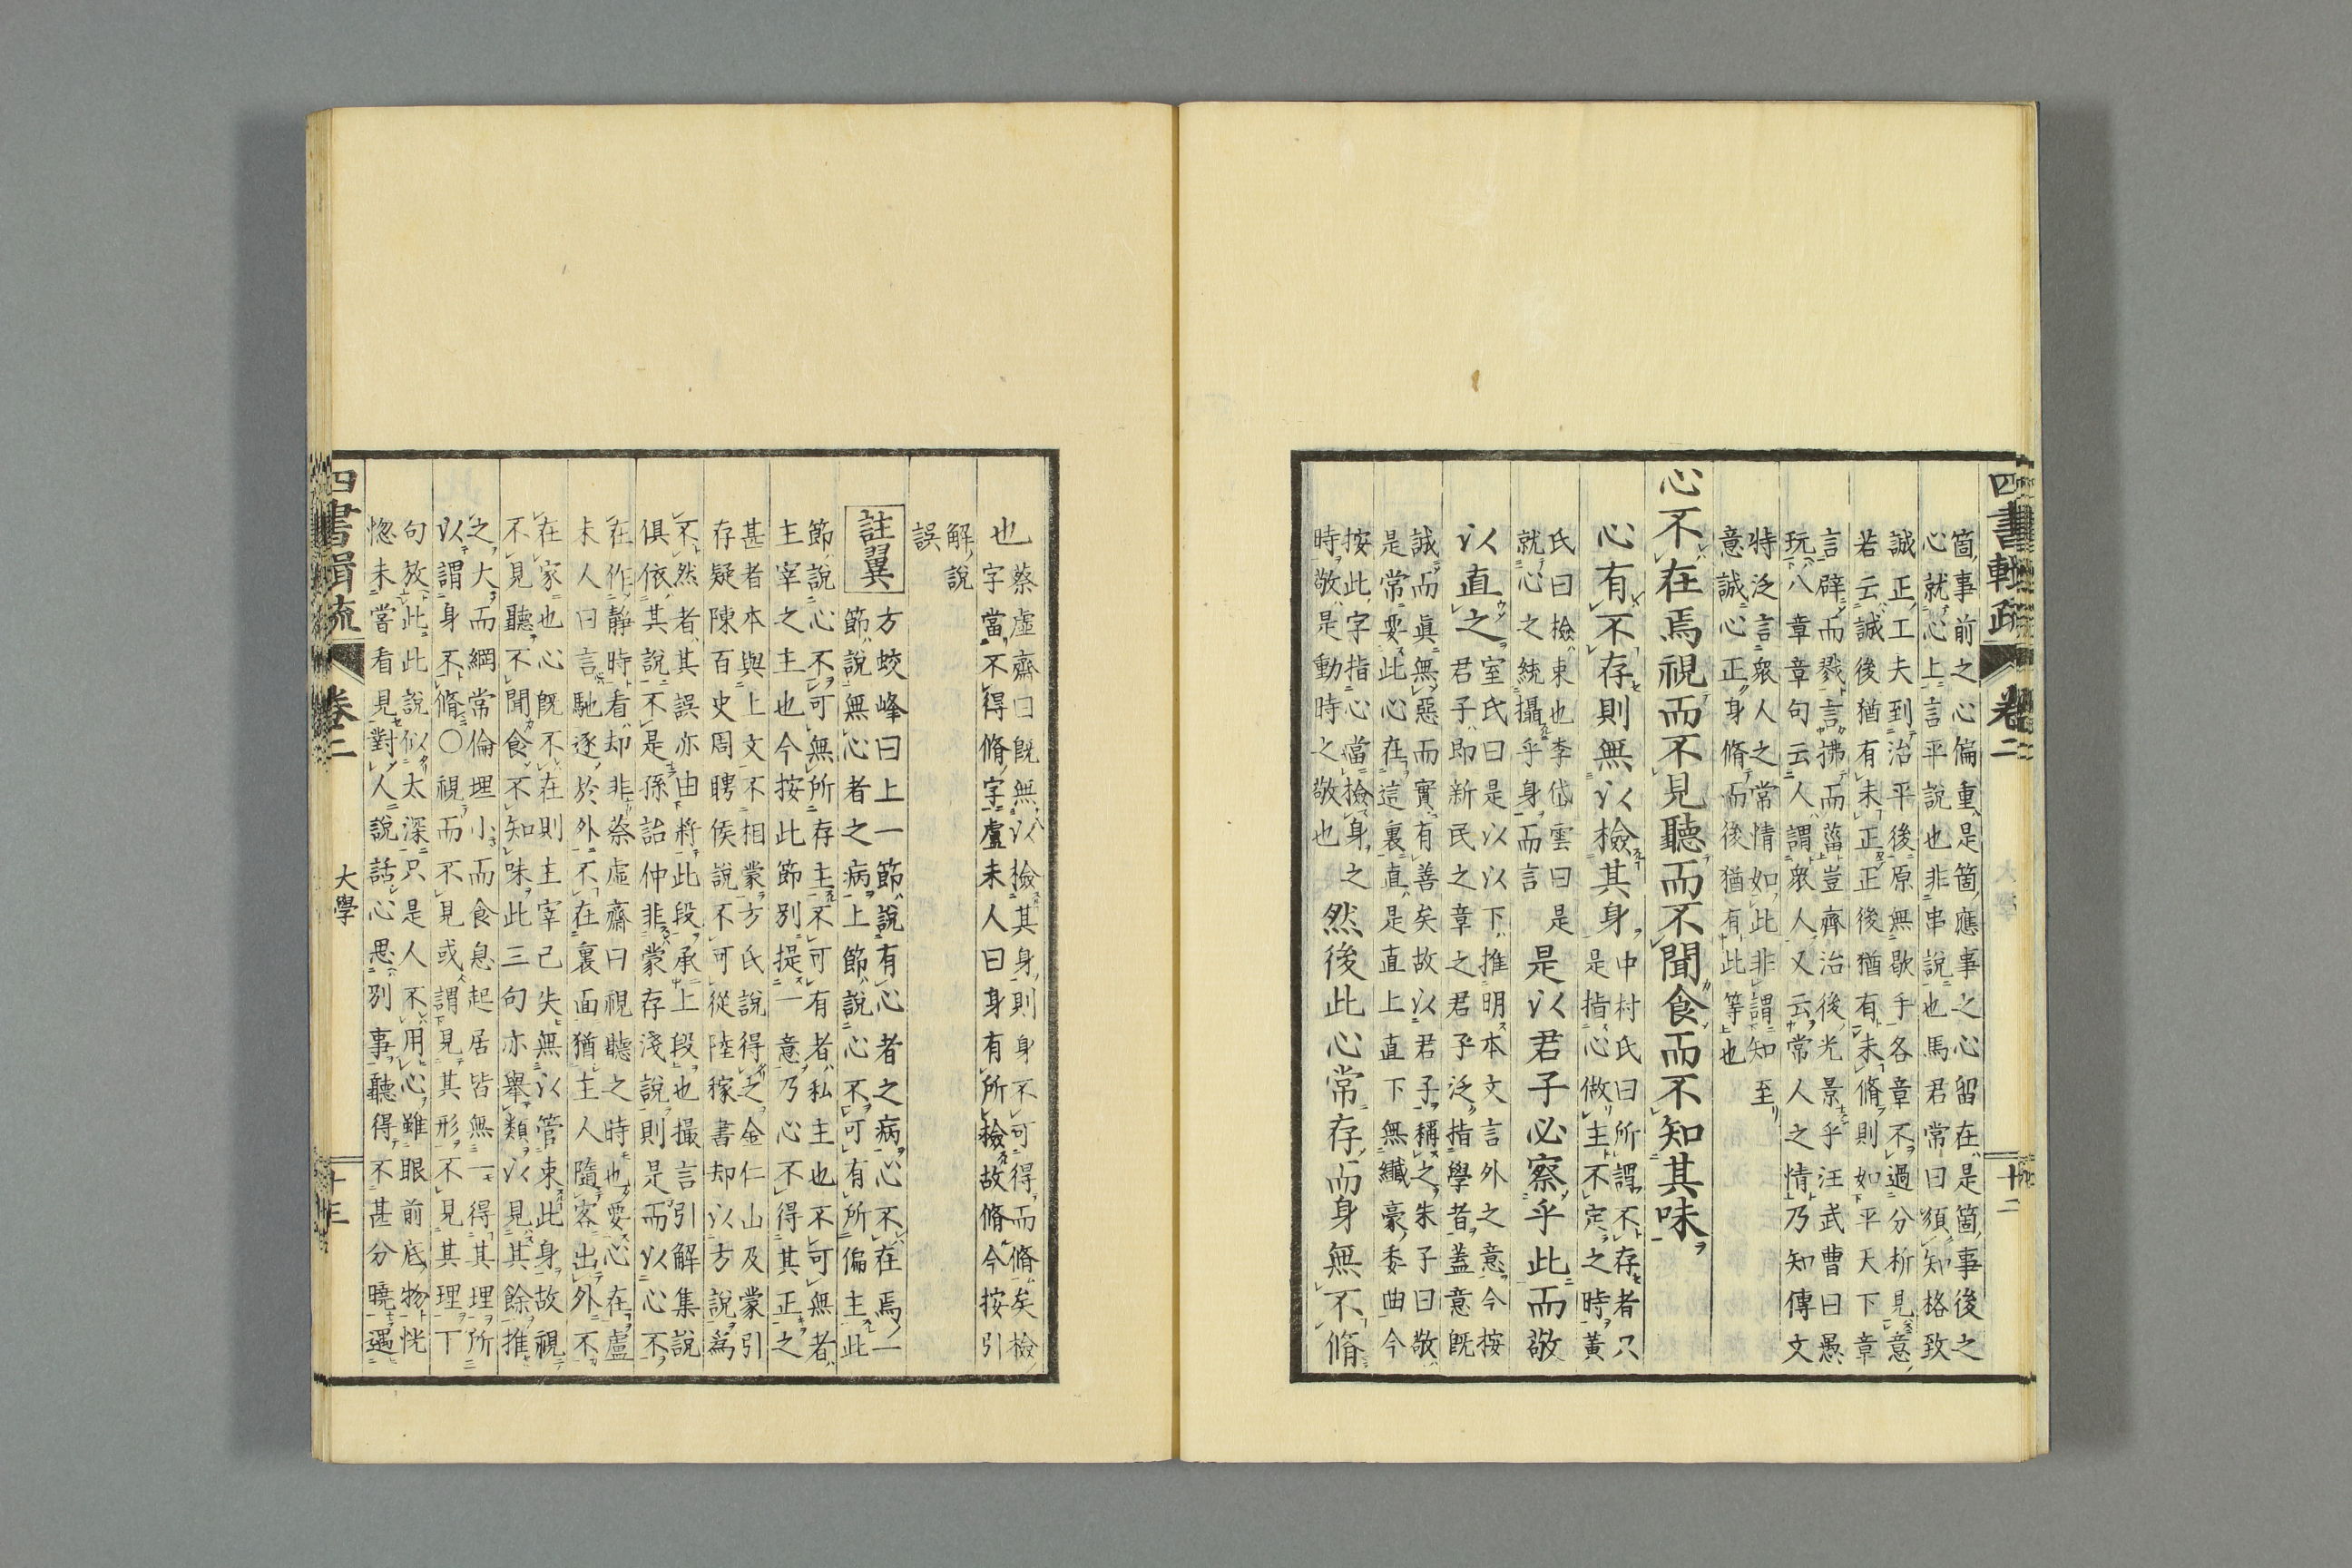 四書輯疏 卷二 十二
箇事前之心偏重是箇應事之心留在是箇事後之
心就心上言平說也非串說也馬君常曰須知格致
誠正工夫到治平後原無歇手各章不過分析見意
若云誠後猶有未正正後猶有未脩則如平天下章
言辟而戮言拂而菑豈齊治後光景乎汪武曹曰愚
玩八章章句云人謂衆人又云常人之情乃知傳文
特泛言衆人之常情如此非謂知至
意誠心正身脩而後猶有此等也
心不在焉視而不見聽而不聞食而不知其味
心有不存則無以檢其身
中村氏曰所謂不存者只
是指心做主不定之時黃
氏曰檢束也李岱雲曰是
就心之統攝乎身而言
是以君子必察乎此而敬
以直之
室氏曰是以以下推明本文言外之意今按
君子即新民之章之君子泛指學者蓋意既
誠而眞無惡而實有善矣故以君子稱之朱子曰敬
是常要此心在這裏直是直上直下無纖豪委曲今
按此字指心當檢身之
時敬是動時之敬也
然後此心常存而身無不脩
也
蔡虛齋曰既無以檢其身則身不可得而脩矣檢
字當不得脩字盧未人曰身有所檢故脩今按引
解說
誤
註翼
方蛟峰曰上一節說有心者之病心不在焉一
節說無心者之病上節說心不可有所偏主此
節說心不可無所存主不可有者私主也不可無者
主宰之主也今按此節別提一意乃心不得其正之
甚者本與上文不相蒙方氏說得之金仁山及蒙引
存疑陳百史周聘侯說不可從陸稼書却以方說爲
不然者其誤亦由將此段承上段也撮言引解集說
俱依其說不是孫詒仲非蒙存淺說則是而以心不
在作靜時看却非蔡虛齋曰視聽之時也要心在盧
未人曰言馳逐於外不在裏面猶主人隨客出外不
在家也心既不在則主宰已失無以管束此身故視
不見聽不聞食不知味此三句亦舉類以見其餘推
之大而綱常倫理小而食息起居皆無一得其理所
以謂身不脩〇視而不見或謂見其形不見其理下
句放此此說似太深只是人不用心雖眼前底物恍
惚未嘗看見對人說話心思別事聽得不甚分曉遇
四書輯疏 卷二 大學 十三